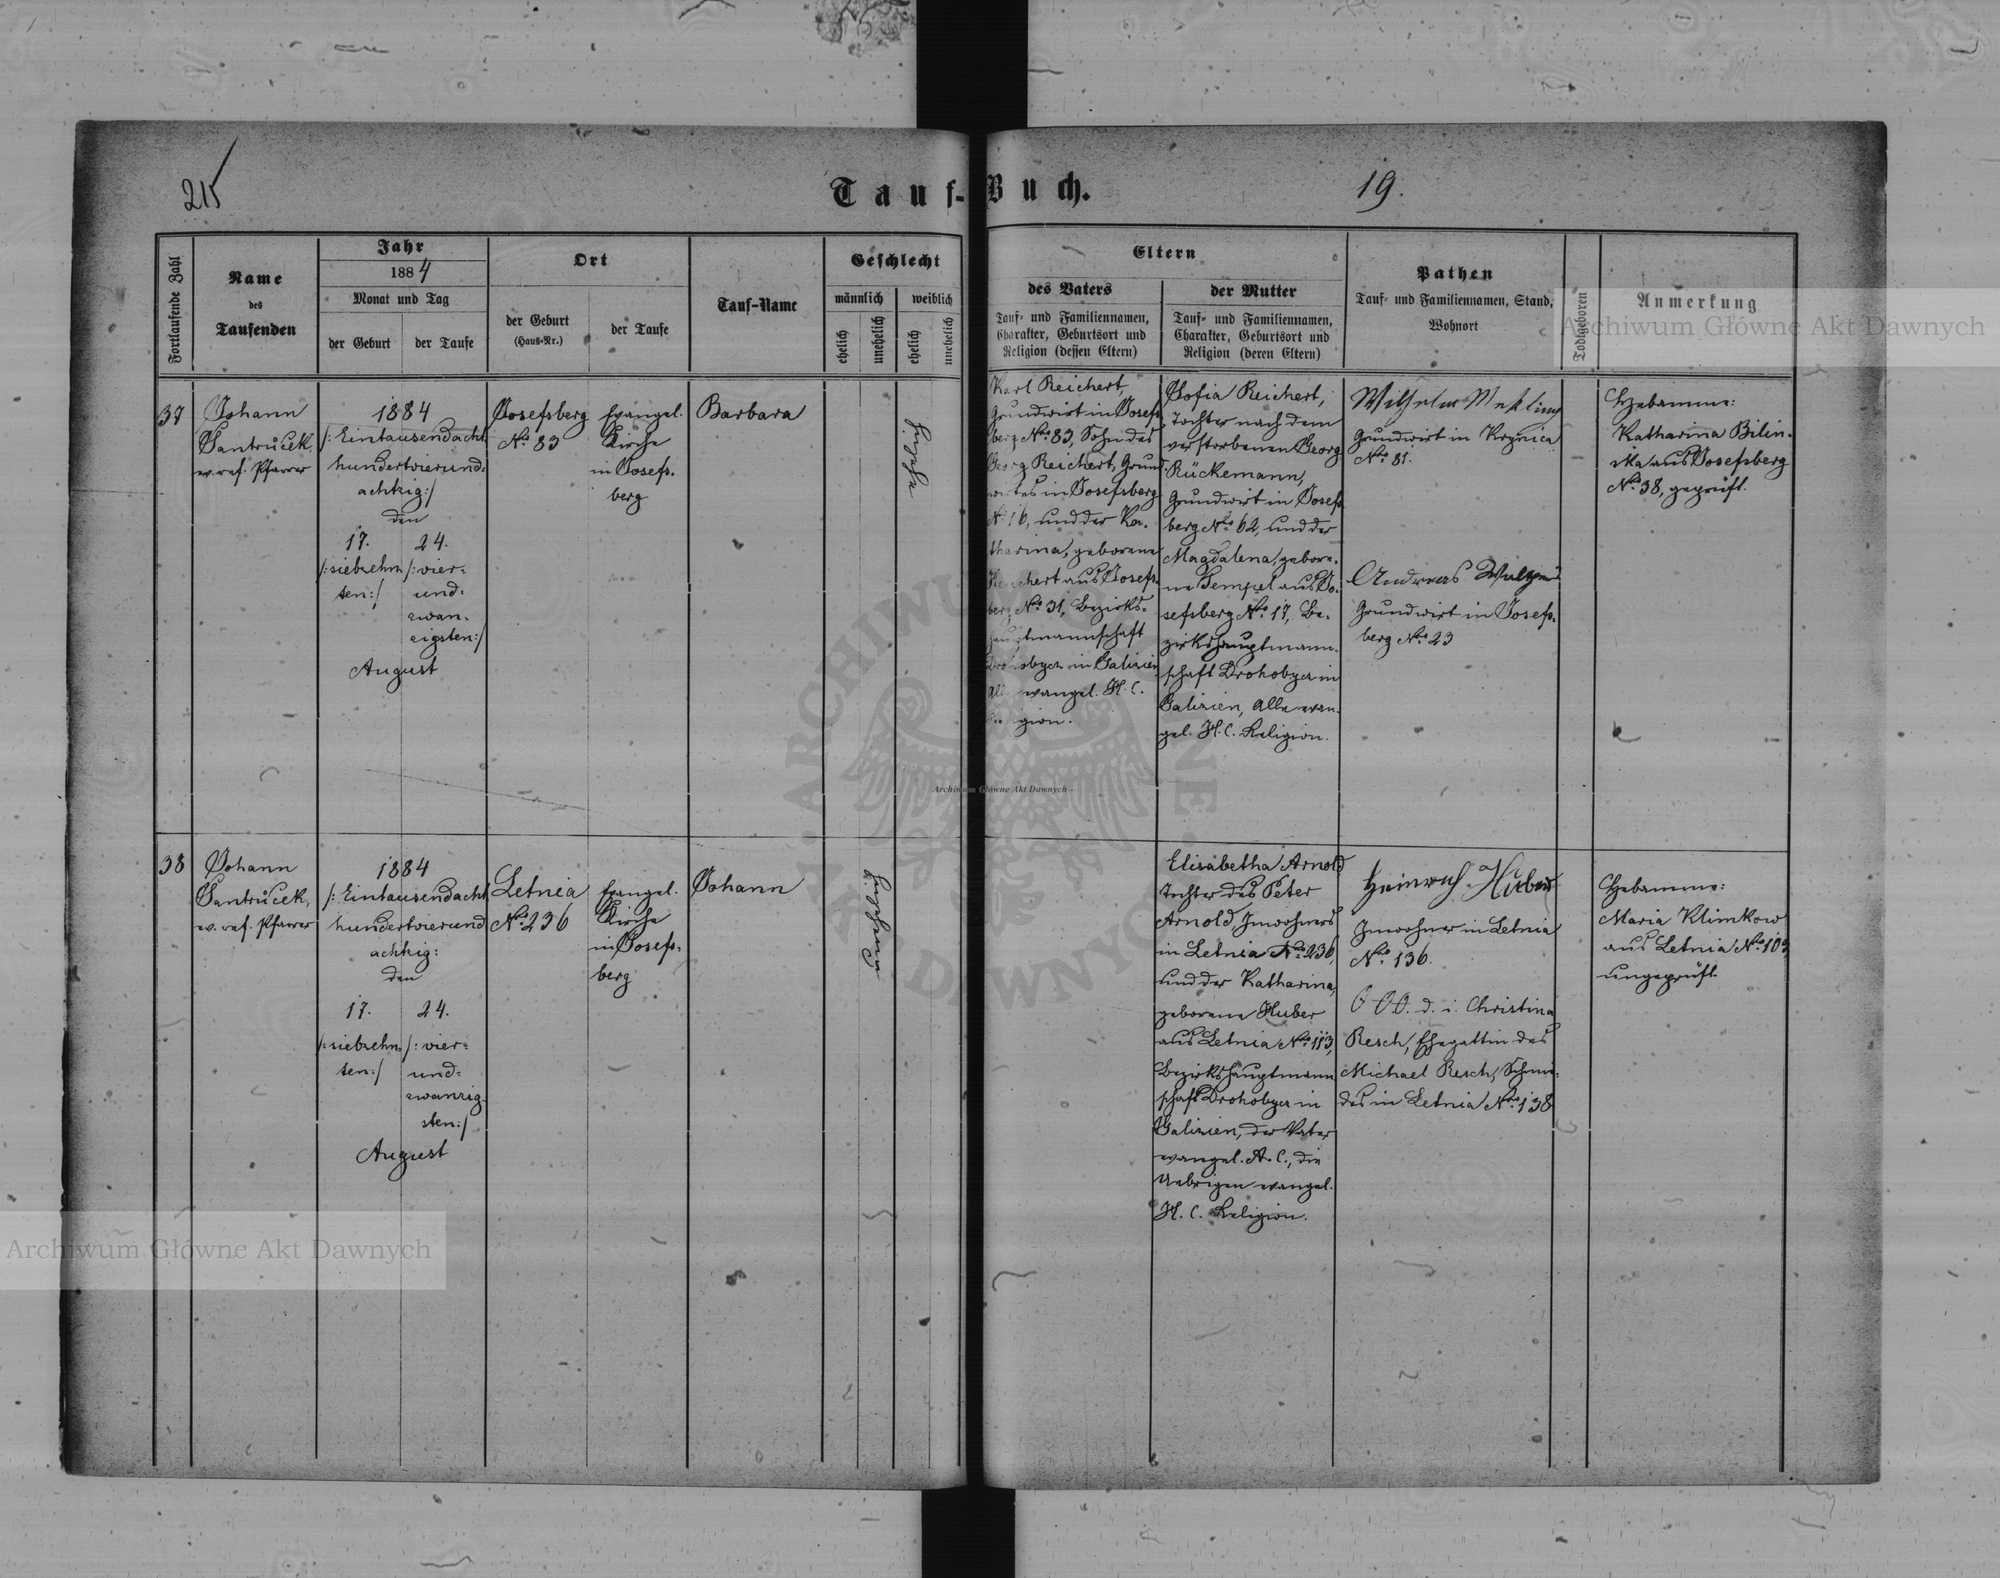 215
Tauf-Buch.
19.
Fortlaufende Zahl
Name
des
Taufenden
Jahr
1884
Monat und Tag
der Geburt
der Taufe
Ort
der Geburt
(Haus-Nr.)
der Taufe
Tauf-Name
Geschlecht
männlich
weiblich
ehelich
unehelich
ehelich
unehelich
Eltern
des Vaters
Tauf- und Familiennamen,
Charakter, Geburtsort und
Religion (dessen Eltern)
der Mutter
Tauf- und Familiennamen,
Charakter, Geburtsort und
Religion (deren Eltern)
Pathen
Tauf- und Familiennamen, Stand,
Wohnort
Todtgeboren
Anmerkung
37
Johann
Santrůček,
ev. ref. Pfarrer
1884
/: Eintausendacht
hundertvierund-
achtzig :/
den
17.
/: siebzehn
ten :/
24.
/: vier-
und-
zwan-
zigsten :/
August
Josefsberg
No. 83
Evangel.
Kirche
in Josefs-
berg
Barbara
Karl Reichert,
Grundwirt in Josefs
berg No. 83, Sohn des
Georg Reichert, Grund
wirtes in Josefsberg
No. 16, und der Ka-
tharina, geborene
aus Josefs-
berg No. 31, Bezirks-
hauptmannschaft
Drohobycz in Galizien
Alle evangel. H. C.
Religion.
Sofia Reichert,
Tochter nach dem
verstorbenen Georg
Rückemann,
Grundwirt in Josefs
berg No. 62, und der
Magdalena, gebore-
ne Tempel aus Jo-
sefsberg No. 17, Be-
zirkshauptmann-
schaft Drohobycz in
Galizien, Alle evan-
gel. H. C. Religion.
Wilhelm
Grundwirt in Krynica
No. 81.
Andreas
Grundwirt in Josefs-
berg No. 23
Hebamme:
Katharina Bilin-
ska aus Josefsberg
No. 38, geprüft.
38
Johann
Santrůček,
ev. ref. Pfarrer
1884
/: Eintausendacht
hundertvierund
achtzig :
den
17.
/: siebzehn
ten :/
24.
/: vier-
und-
zwanzig-
sten :/
August
Letnia
No. 236
Evangel.
Kirche
in Josefs-
berg
Johann
Elisabetha Arnold
Tochter des Peter
Arnold, Inwohners
in Letnia No. 236,
und der Katharina,
geborene Huber
aus Letnia No. 113,
Bezirkshauptmann
schaft Drohobycz in
Galizien, der Vater
evangel. A. C., die
Uebrigen evangel.
H. C. Religion.
Heinrich Huber
Inwohner in Letnia
No. 136.
d. i. Christina
Resch, Ehegattin des
Michael Resch, Schmi-
des in Letnia No. 138
Hebamme:
Maria Klimkow
aus Letnia No. 109,
ungeprüft.
Archiwum Główne Akt Dawnych
Archiwum Główne Akt Dawnych
Archiwum Główne Akt Dawnych